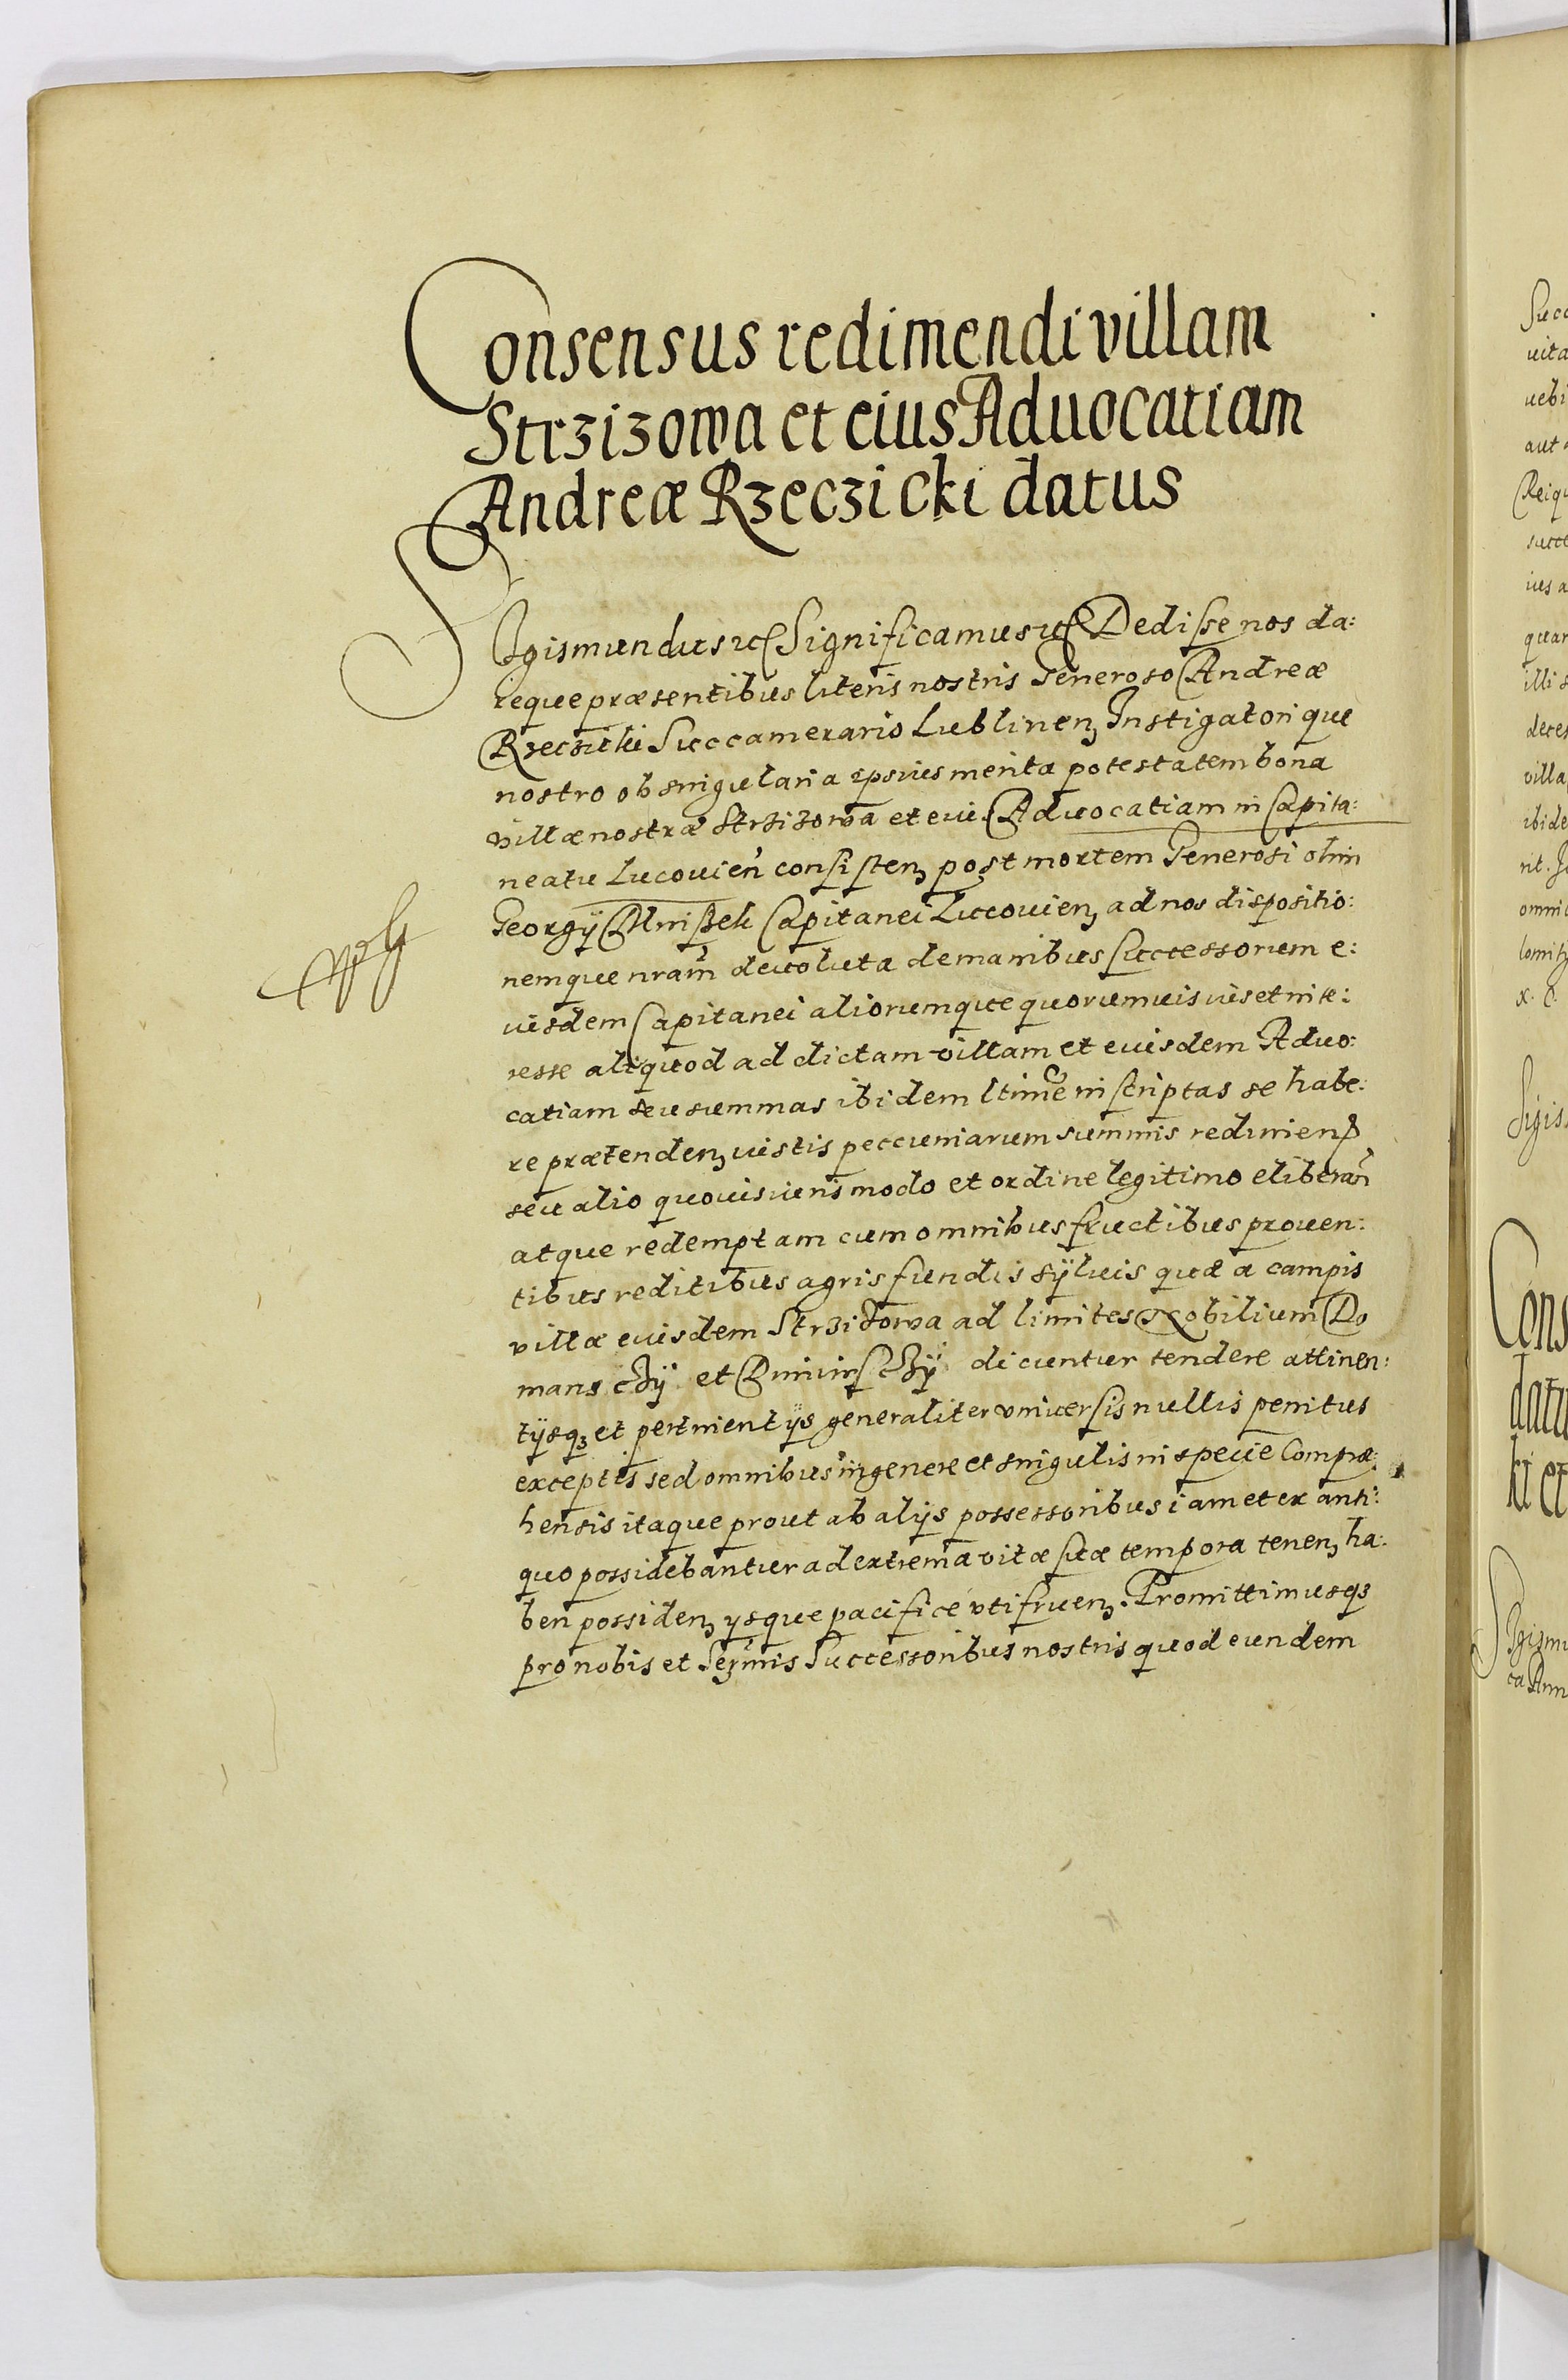 Consensus redimendi villam
Strzizowa et eius Aduocatiam
Andreæ Rzeczicki datus
SJgismundus etc Significamus etc Dedisse nos da:
reque præsentibus literis nostris Generoso Andreæ
Rzeczicki Succamerario Lublinenʒ Instigatorique
nostro ob singularia ipsius merita potestatem bona
villæ nostræ Strzizowa et eius Aduocatiam in Capita:
neatu Lucouien̄ consistenʒ post mortem Generosi olim
Georgÿ Mnißek Capitanei Lucouienʒ ad nos dispositio:
nemque nram̄ deuoluta de manibus successorum e:
iusdem Capitanei aliorumque quorumuis ius et inte:
resse aliquod ad dictam villam et eiusdem Aduo:
catiam seu summas ibidem ltime inscriptas se habe:
re prætendenʒ iustis pecuniarum summis redimen
seu alio quouis iuris modo et ordine legitimo eliberan̄
atque redemptam cum omnibus fructibus prouen:
tibus reditibus agris fundis sÿluis quæ a campis
villæ eiusdem Strzizowa ad limites Nobilium Do
mans ckÿ et dicuntur tendere attinen:
tÿsqʒ et pertinentÿs generaliter vniuersis nullis penitus
exceptis sed omnibus in genere et singulis in specie compræ:
hensis itaque prout ab alÿs possessoribus iam et ex anti:
quo possidebantur ad extrema vitæ suæ tempora tenenʒ ha:
ben possidenʒ ysque pacifice vtifruenʒ. Promittimusqʒ
pro nobis et Serm̄is Successoribus nostris quod eundem